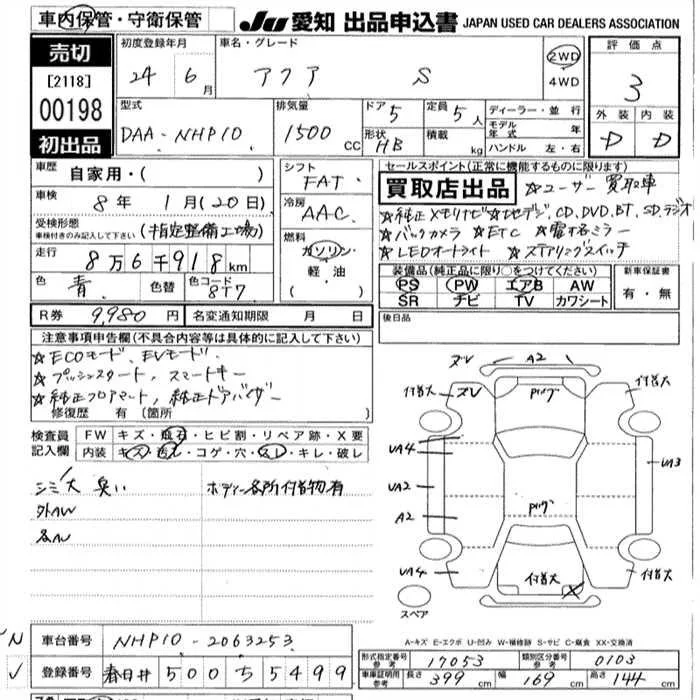 車内保管・守衛保管
JU 愛知 出品申込書 JAPAN USED CAR DEALERS ASSOCIATION
売切
[2118]
00198
初出品
初度登録年月
24 6月
車名・グレード
アクア S
2WD
4WD
評価点
3
外装 内装
D D
型式
DAA-NHP10
排気量
1500 CC
ドア 5
形状 HB
定員 5人
積載 kg
ディーラー・並行
モデル年式 年
ハンドル 左・右
車歴
自家用・( )
車検
8年 1月(20日)
受検形態
車検付きのみ記入して下さい
(指定整備工場)
走行
8万6千918km
色 青 色替 色コード 8T7
シフト
FAT
冷房
AAC
燃料
ガソリン
軽油
( )
セールスポイント(正常に機能するものに限ります)
買取店出品 ☆ユーザー買取車
☆純正メモリナビ☆地デジ,CD,DVD,BT,SD,ラジオ
☆バックカメラ ☆ETC ☆電格ミラー
☆LEDオートライト ☆ステアリングスイッチ
装備品(純正品に限り○をつけてください)
PS PW エアB AW
SR ナビ TV カワシート
新車保証書
有・無
R券 9,980円 名変通知期限 月 日
後日品
注意事項申告欄(不具合内容等は具体的に記入して下さい)
☆ECOモード、EVモード、
☆プッシュスタート、スマートキー
☆純正フロアマット、純正ドアバイザー
修復歴 有 (箇所 )
検査員記入欄
FW キズ・飛石・ヒビ割・リペア跡・X要
内装 キズ・汚れ・コゲ・穴・スレ・キレ・破レ
シミ大 臭い
外AW
ボディー各所付着物有
ズV A2
付着大 ズV Pハゲ 付着大
UA4
UA3
UA2
Pハゲ
A2
UA4 付着大 X 付着大
スペア
A-キズ E-エクボ U-凹み W-補修跡 S-サビ C-腐食 XX-交換済
N
✓
車台番号 NHP10-2063253
登録番号 春日井 500 ち 5499
形式指定番号 参考 17053
類別区分番号 参考 0103
車庫証明用 参考 長さ 399cm 幅 169cm 高さ 144cm